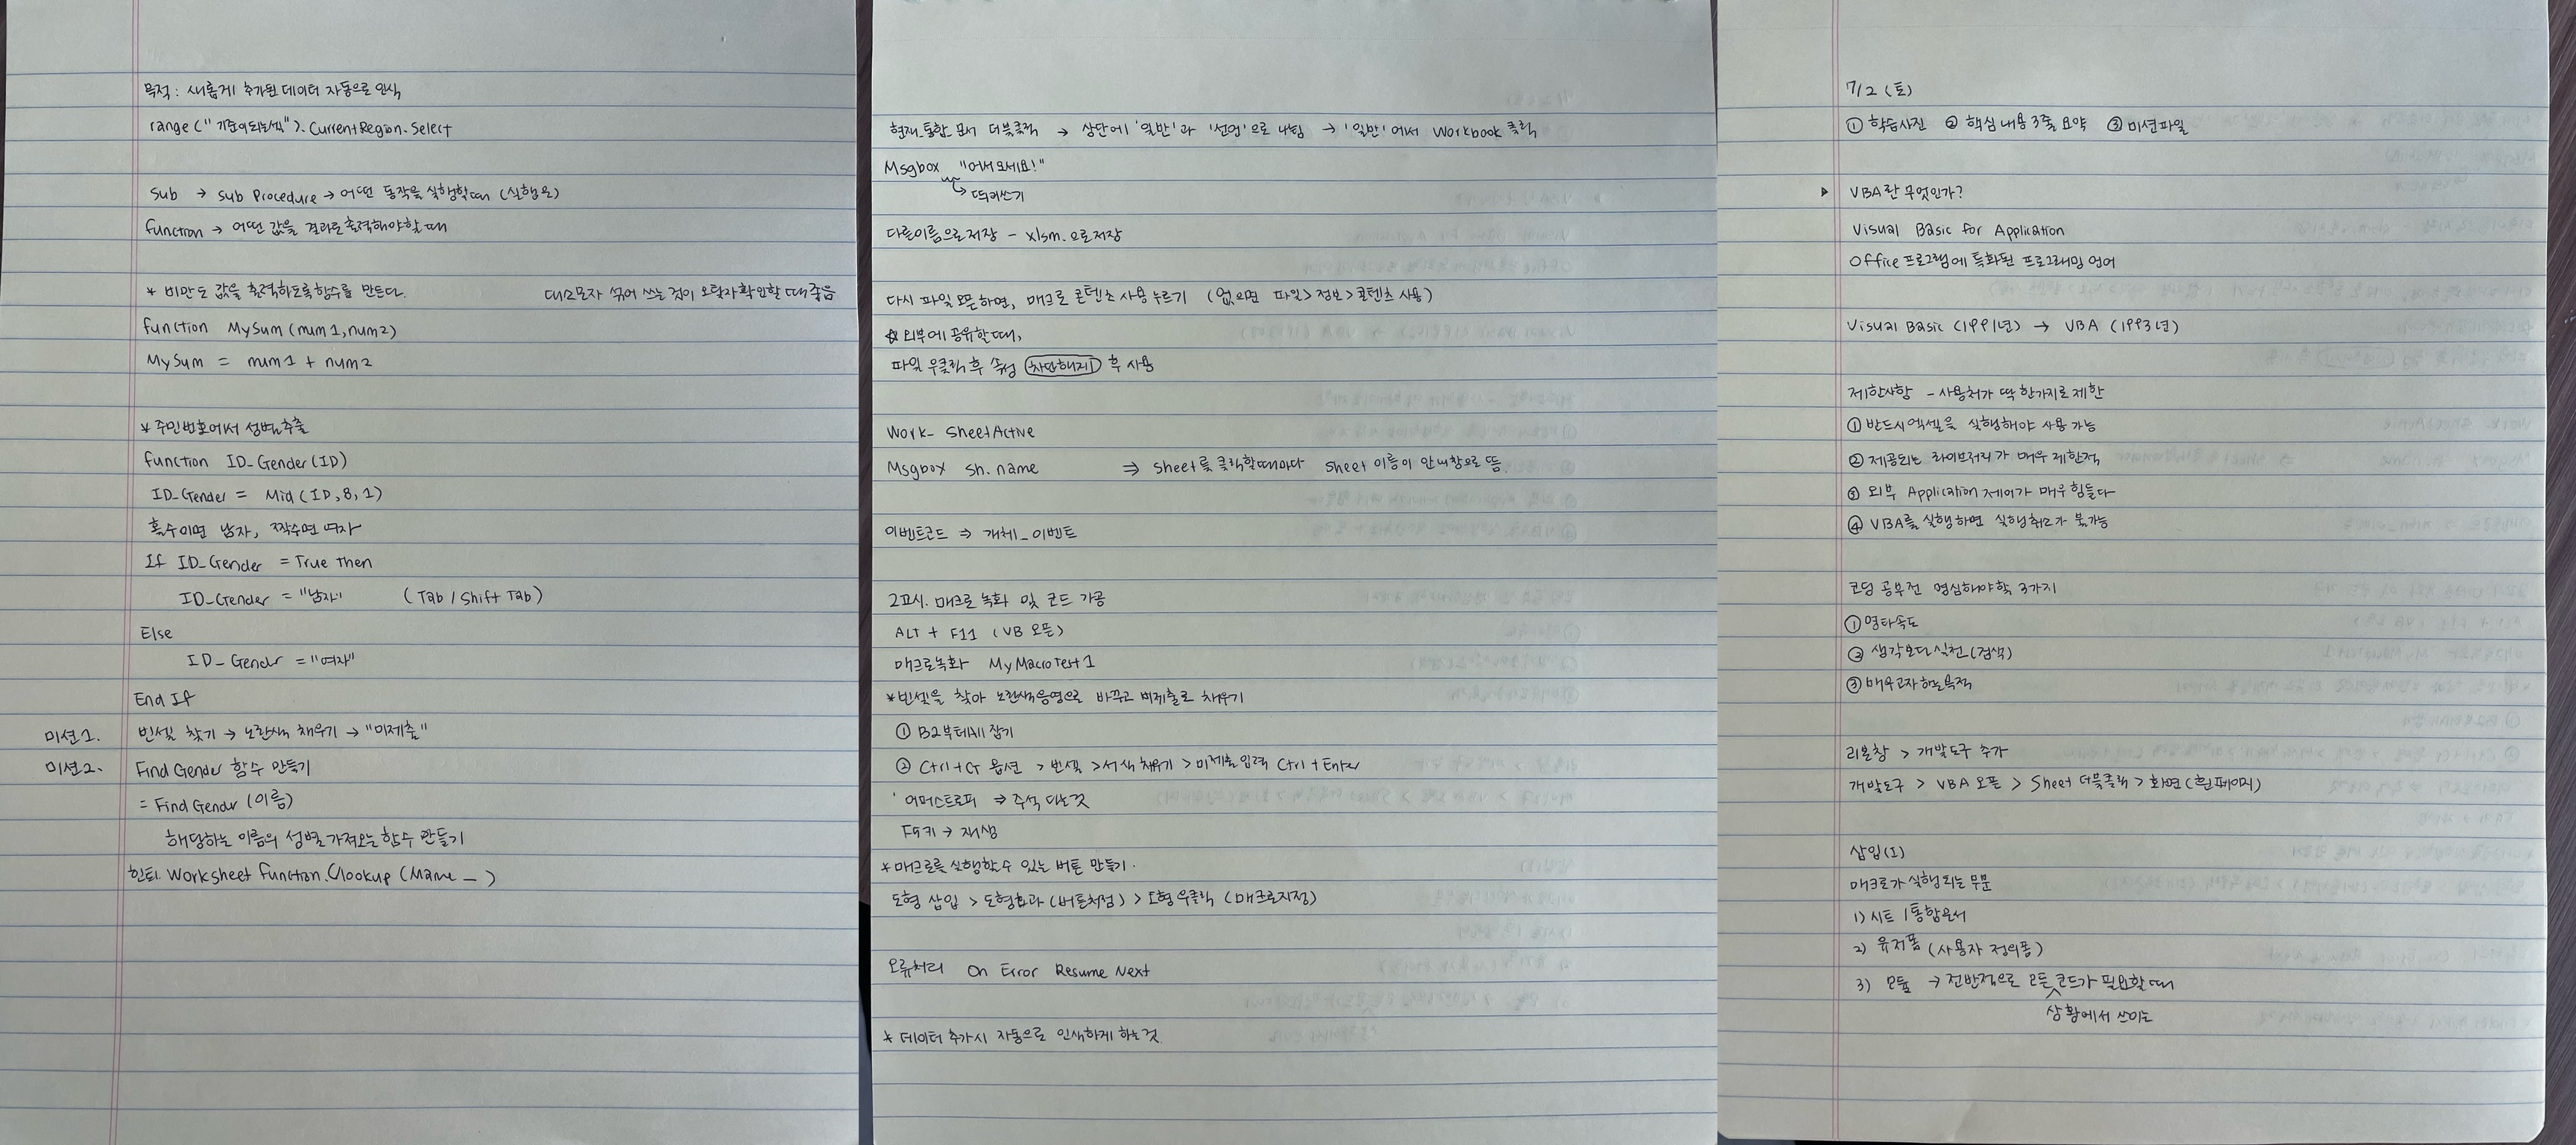 목적 : 새롭게 추가된 데이터 자동으로 인식
range("기준이되는셀").CurrentRegion.Select
Sub → Sub Procedure → 어떤 동작을 실행할때 (실행문)
function → 어떤 값을 결과로 출력해야할 때
* 비만도 값을 출력하도록 함수를 만든다. 대소문자 섞어 쓰는 것이 오탈자 확인할 때 좋음
function MySum(num1,num2)
MySum = num1 + num2
* 주민번호에서 성별 추출
function ID_Gender(ID)
ID_Gender = Mid(ID,8,1)
홀수이면 남자, 짝수면 여자
If ID_Gender = True then
ID_Gender = "남자" (Tab / Shift Tab)
Else
ID_Gender = "여자"
End If
미션1. 빈셀 찾기 → 노란색 채우기 → "미제출"
미션2. Find Gender 함수 만들기
= Find Gender (이름)
해당하는 이름의 성별 가져오는 함수 만들기
힌트. Worksheet function.Vlookup (Name _ )
현재_통합_문서 더블클릭 → 상단에 '일반'과 '선언'으로 나뉨 → '일반'에서 Workbook 클릭
Msgbox "어서오세요!"
↳ 띄어쓰기
다른이름으로저장 - xlsm.으로저장
다시 파일 오픈하면, 매크로 콘텐츠 사용 누르기 (없으면 파일 > 정보 > 콘텐츠 사용)
☆ 외부에 공유할때,
파일 우클릭 후 속성 차단해제 후 사용
Work_ SheetActive
Msgbox sh.name ⇒ Sheet를 클릭할때마다 Sheet 이름이 안내창으로 뜸.
이벤트코드 ⇒ 개체_이벤트
2교시. 매크로 녹화 및 코드 가공
ALT + F11 (VB 오픈)
매크로녹화 MyMacroTest1
* 빈셀을 찾아 노란색음영으로 바꾸고 미제출로 채우기
① B2부터All 잡기
② Ctrl+G 옵션 > 빈셀 > 서식 채우기 > 미제출 입력 Ctrl + Enter
' 어퍼스트로피 ⇒ 주석 다는것
F5키 → 재생
* 매크로를 실행할수 있는 버튼 만들기.
도형 삽입 > 도형효과 (버튼처럼) > 도형 우클릭 (매크로지정)
오류처리 On Error Resume Next
* 데이터 추가시 자동으로 인색하게 하는것.
7/2 (토)
① 학습사진 ② 핵심 내용 3줄 요약 ③ 미션파일
▷ VBA란 무엇인가?
Visual Basic for Application
Office 프로그램에 특화된 프로그래밍 언어
Visual Basic (1991년) → VBA (1993년)
제한사항 - 사용처가 딱 한가지로 제한
① 반드시 엑셀을 실행해야 사용 가능
② 제공되는 라이브러리가 매우 제한적
③ 외부 Application 제어가 매우 힘들다
④ VBA를 실행하면 실행취소가 불가능
코딩 공부전 명심해야할 3가지
① 영타속도
② 생각보다 실천(검색)
③ 배우고자 하는 목적
리본창 > 개발도구 추가
개발도구 > VBA 오픈 > Sheet 더블클릭 > 화면 (흰페이지)
삽입(I)
매크로가 실행되는 부문
1) 시트 / 통합문서
2) 유저폼 (사용자 정의폼)
3) 모듈 → 전반적으로 모든 코드가 필요할 때
상황에서 쓰이는